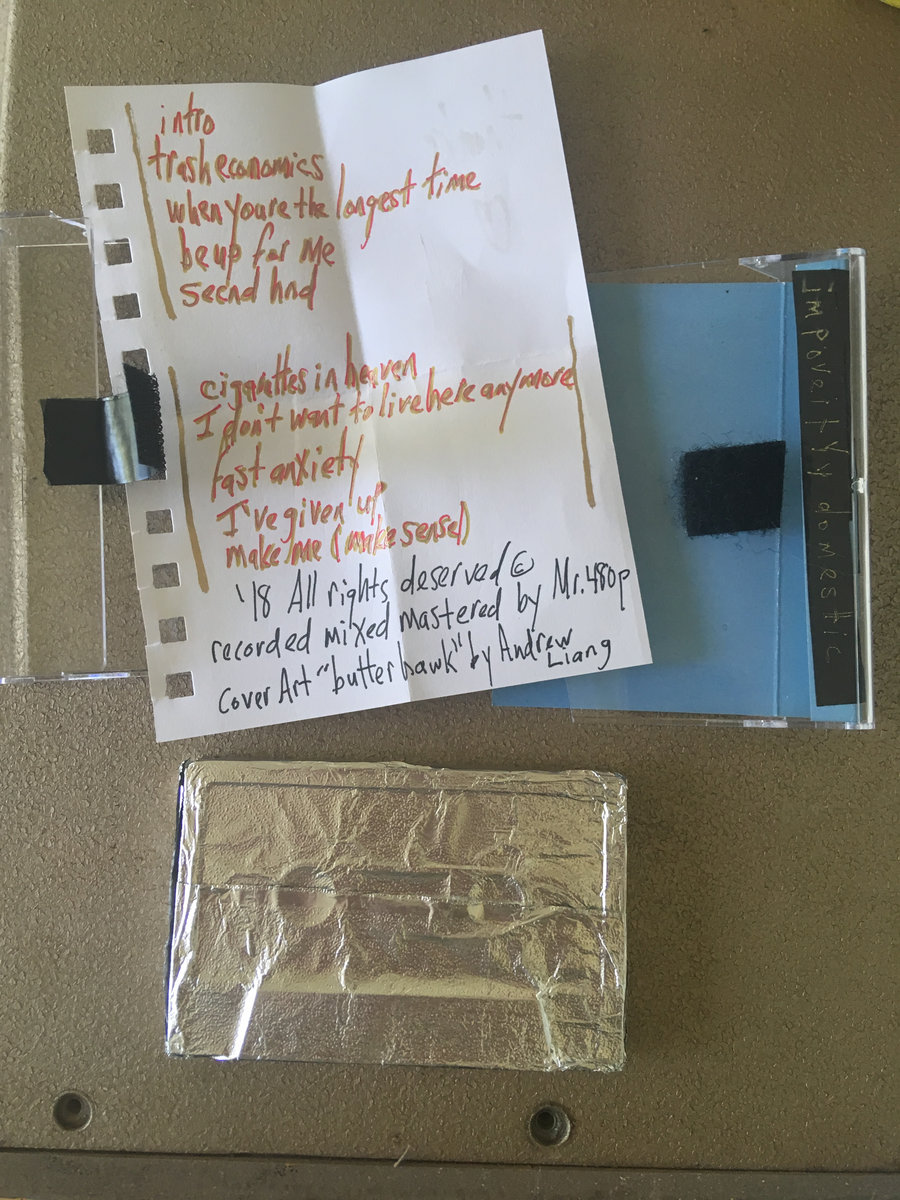 intro
trash economics
when youre the longest time
be up for me
secnd hnd
cigarttes in heaven
I don't want to live here anymore
fast anxiety
I've given up
make me (make sense)
'18 All rights deserved ©
recorded mixed mastered by Mr.480p
Cover Art "butterhawk" by Andrew
Liang
domestic